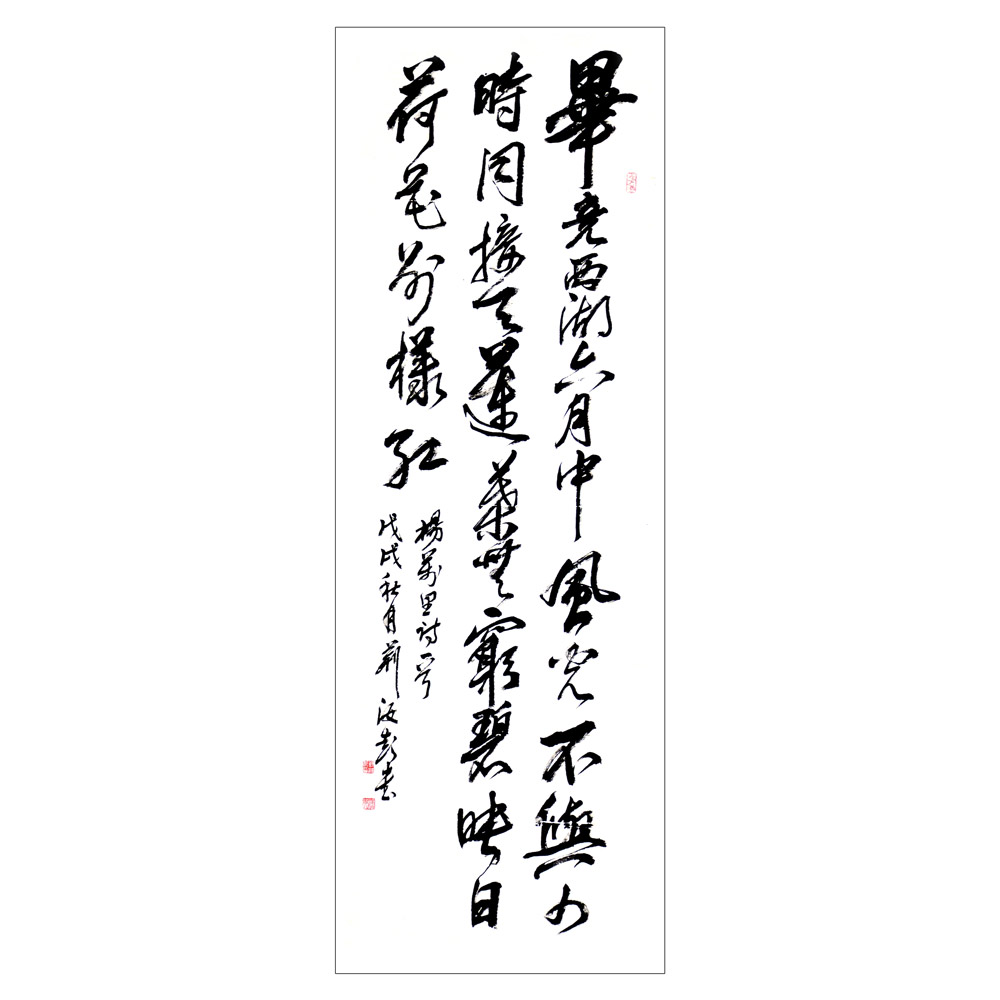 畢竟西湖六月中風光不與四
時同接天蓮葉無窮碧映日
荷花別樣紅
楊萬里詩一首
戊戌秋月荊汝彭書